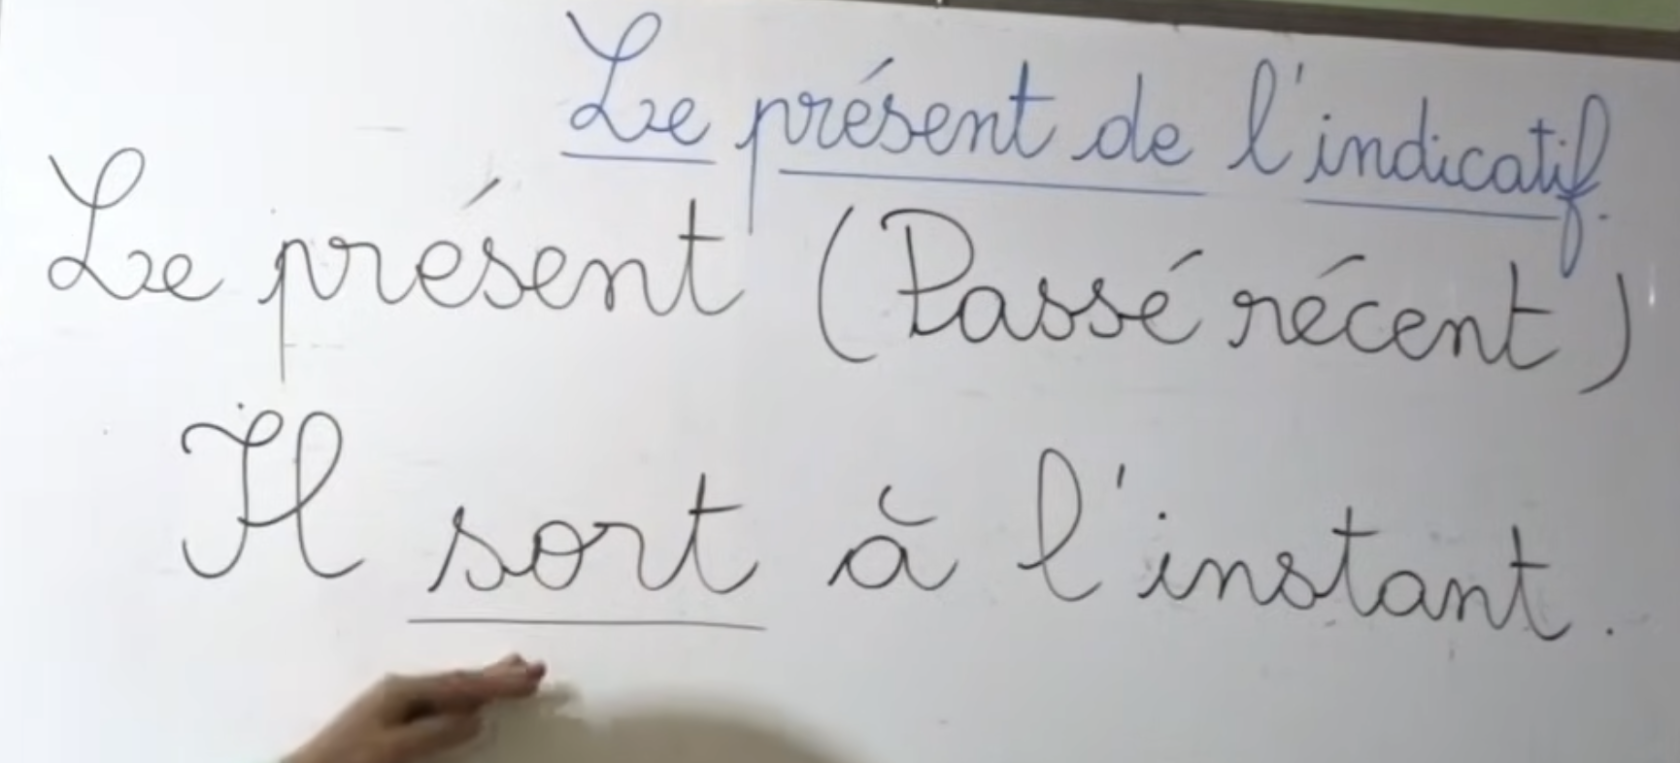 Le présent de l'indicatif.
Le présent (Passé récent)
Il sort à l'instant.